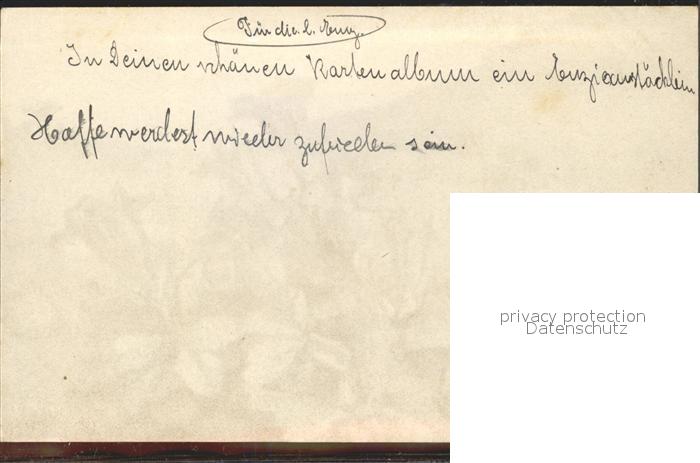 Für die l.
In Deinen schönen Kartenalbum ein Enzianstöcklein
Hoffe werdest wieder zufrieden sein.
privacy protection
Datenschutz